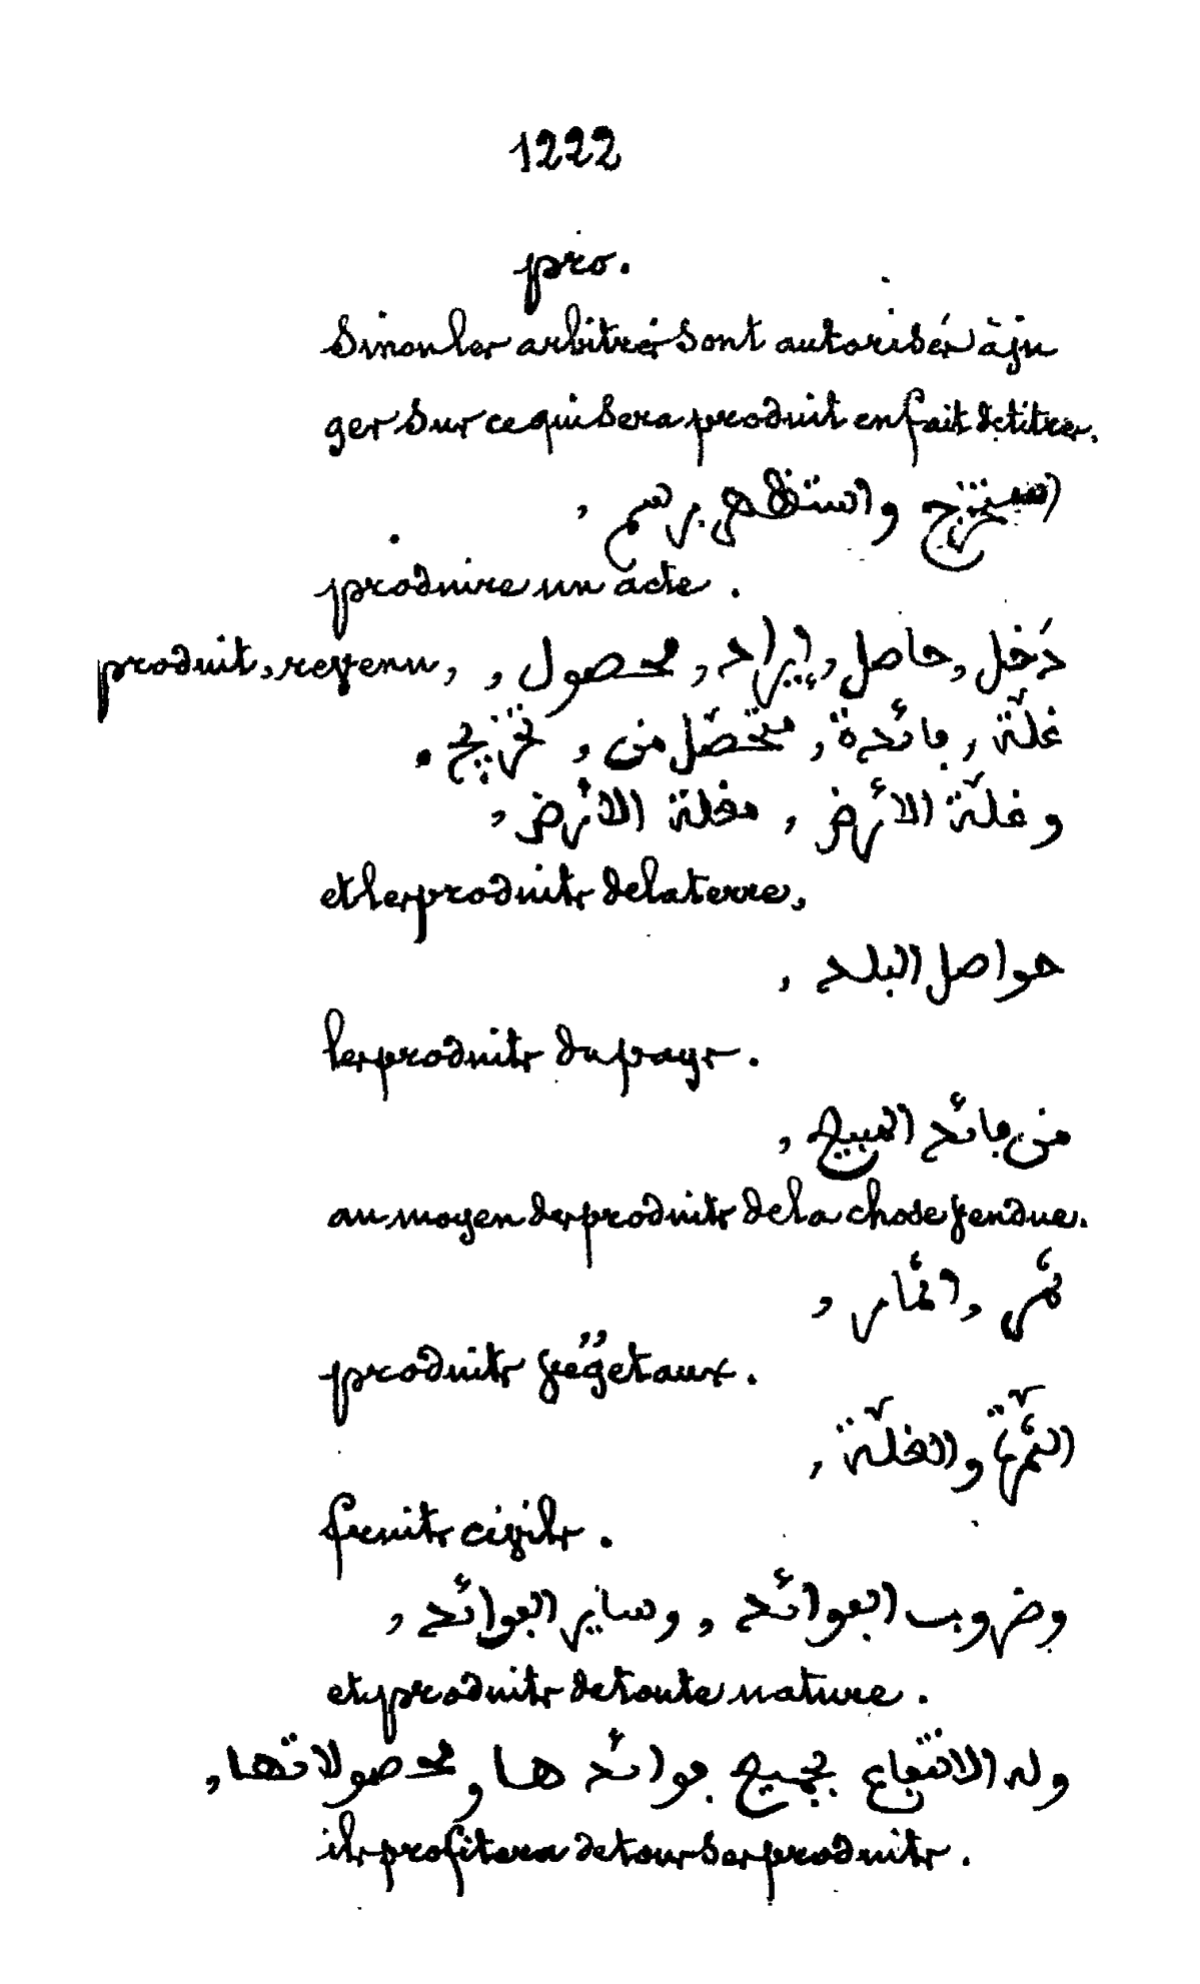 1222
pro.
Sinon les arbitres sont autorisés à ju
ger sur ce qui sera produit en fait de titres.
استخرج واستظهر برسم ,
produire un acte .
produit, revenu, , دَخل , حاصل , إيراد , محصول
غلّة , فائدة , متحصّل من , تخريج .
وغلّة الأرض , مغلة الأرض ,
et les produits de la terre,
حواصل البلد ,
les produits du pays .
من فائد المبيع ,
au moyen des produits de la chose vendue .
ثمر , اثمار ,
produits végétaux .
الثمرة والغلّة ,
fruits civils .
وضروب الفوائد , وساير الفوائد ,
et produits de toute nature .
وله الانتفاع بجميع فوائدها ومحصولاتها ,
ils profitera de tous ses produits .